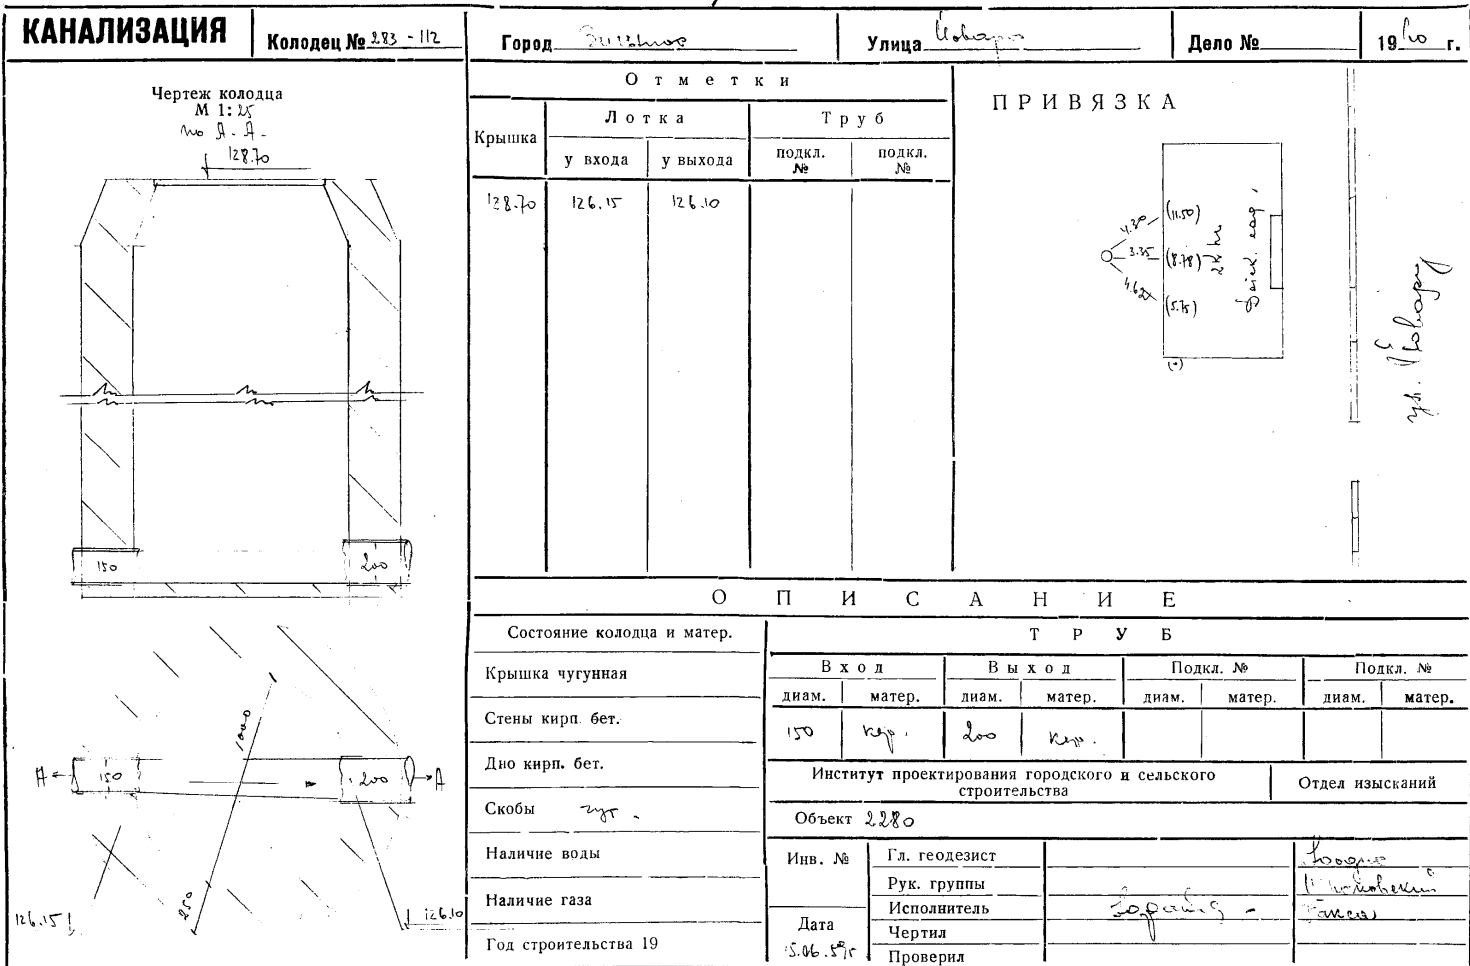 КАНАЛИЗАЦИЯ
Колодец № 283-112
Город
Улица
Дело №
19 г.
Чертеж колодца
М 1:25
по А-А
128.70
150
200
1000
А
150
200
А
250
126.15
126.10
Отметки
Крышка
Лотка
Труб
у входа
у выхода
подкл. №
подкл. №
128.70 126.15 126.10
ПРИВЯЗКА
4.30 (11.50)
3.35 (8.78)
4.62 (5.75)
2К
(•)
ул.
ОПИСАНИЕ
Состояние колодца и матер.
Крышка чугунная
Стены кирп. бет.
Дно кирп. бет.
Скобы чуг.
Наличие воды
Наличие газа
Год строительства 19
ТРУБ
Вход
Выход
Подкл. №
Подкл. №
диам. матер. диам. матер. диам. матер. диам. матер.
150 кер. 200 кер.
Институт проектирования городского и сельского
строительства
Отдел изысканий
Объект 2280
Инв. №
Дата
Гл. геодезист
Рук. группы
Исполнитель
Чертил
Проверил